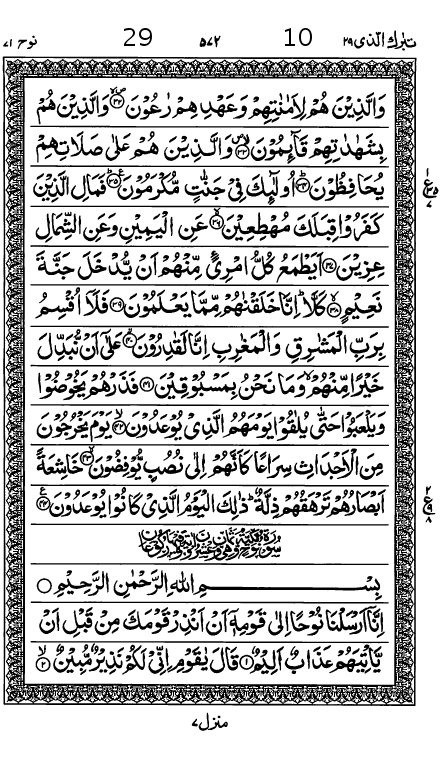 تبرك الذى ٢٩ 10 ٥٧٢ 29 نوح ٧١
وَالَّذِيْنَ هُمْ لِاَمٰنٰتِهِمْ وَعَهْدِهِمْ رٰعُوْنَ ۙ‏﴿۳۲﴾ وَالَّذِيْنَ هُمْ
بِشَهٰدٰتِهِمْ قَآئِمُوْنَ ۙ‏﴿۳۳﴾ وَالَّذِيْنَ هُمْ عَلٰى صَلَاتِهِمْ
يُحَافِظُوْنَ ؕ‏﴿۳۴﴾ اُولٰٓئِكَ فِىْ جَنّٰتٍ مُّكْرَمُوْنَ ؕ‏﴿۳۵﴾ فَمَالِ الَّذِيْنَ
كَفَرُوْا قِبَلَكَ مُهْطِعِيْنَ ۙ‏﴿۳۶﴾ عَنِ الْيَمِيْنِ وَعَنِ الشِّمَالِ
عِزِيْنَ‏﴿۳۷﴾ اَيَطْمَعُ كُلُّ امْرِیٴٍ مِّنْهُمْ اَنْ يُّدْخَلَ جَنَّةَ
نَعِيْمٍ ۙ‏﴿۳۸﴾ كَلَّا ؕ اِنَّا خَلَقْنٰهُمْ مِّمَّا يَعْلَمُوْنَ‏﴿۳۹﴾ فَلَاۤ اُقْسِمُ
بِرَبِّ الْمَشٰرِقِ وَالْمَغٰرِبِ اِنَّا لَقٰدِرُوْنَ ۙ‏﴿۴۰﴾ عَلٰٓى اَنْ نُّبَدِّلَ
خَيْرًا مِّنْهُمْ ۙ وَمَا نَحْنُ بِمَسْبُوْقِيْنَ‏﴿۴۱﴾ فَذَرْهُمْ يَخُوْضُوْا
وَيَلْعَبُوْا حَتّٰى يُلٰقُوْا يَوْمَهُمُ الَّذِىْ يُوْعَدُوْنَ ۙ‏﴿۴۲﴾ يَوْمَ يَخْرُجُوْنَ
مِنَ الْاَجْدَاثِ سِرَاعًا كَاَنَّهُمْ اِلٰى نُصُبٍ يُّوْفِضُوْنَ ۙ‏﴿۴۳﴾ خَاشِعَةً
اَبْصَارُهُمْ تَرْهَقُهُمْ ذِلَّةٌ ؕ ذٰلِكَ الْيَوْمُ الَّذِىْ كَانُوْا يُوْعَدُوْنَ‏﴿۴۴﴾
بِسْمِ اللهِ الرَّحْمٰنِ الرَّحِيْمِ
اِنَّاۤ اَرْسَلْنَا نُوْحًا اِلٰى قَوْمِهٖۤ اَنْ اَنْذِرْ قَوْمَكَ مِنْ قَبْلِ اَنْ
يَّاْتِيَهُمْ عَذَابٌ اَلِيْمٌ‏﴿۱﴾ قَالَ يٰقَوْمِ اِنِّىْ لَكُمْ نَذِيْرٌ مُّبِيْنٌ ۙ‏﴿۲﴾
منزل ٧